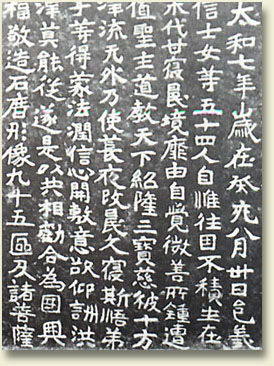 太和七年歲在癸亥八月卅日邑義
信士女等五十四人自惟往因不積生在
末代甘寢昬境靡由自覺微善所鍾遭
值聖主道教天下紹隆三寶慈被十方
澤流无外乃使萇夜改昬久寢斯悟弟
子等得蒙法潤信心開敷意欲仰詶洪
澤莫能從遂是以共相勸合為國興
福敬造石廟形像九十五區及諸菩薩